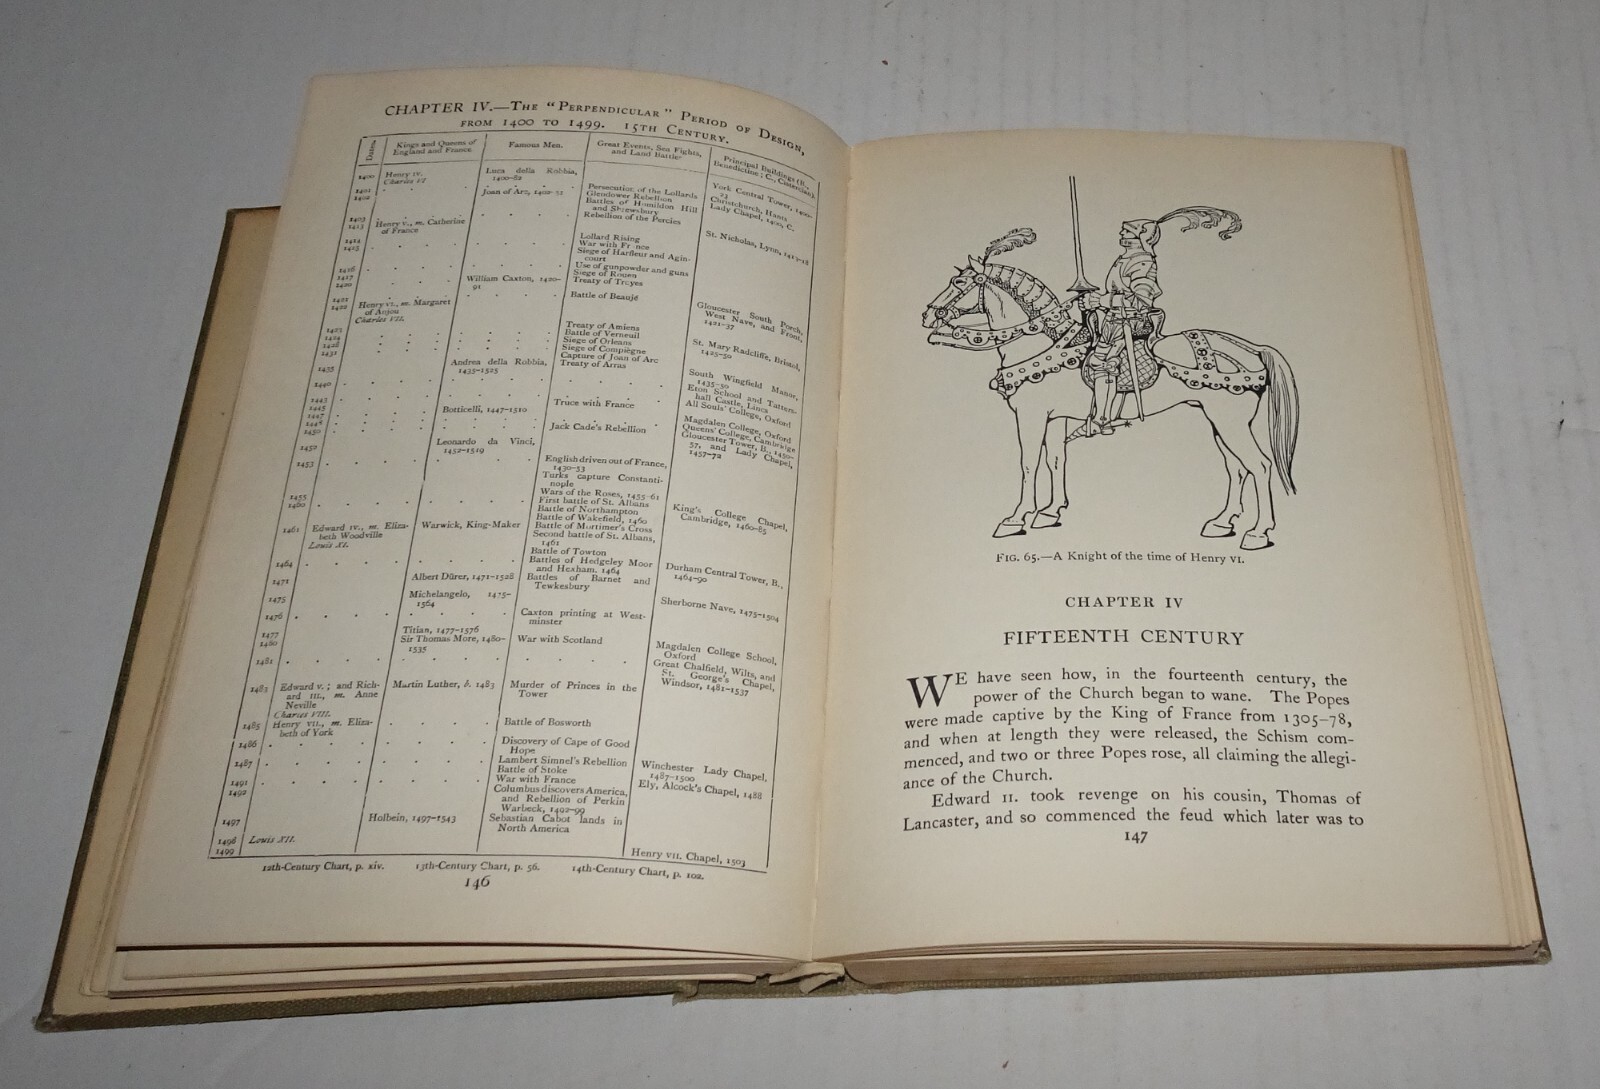 CHAPTER IV.—THE "PERPENDICULAR" PERIOD OF DESIGN,
FROM 1400 TO 1499. 15TH CENTURY.
Dates.
Kings and Queens of
England and France.
Famous Men.
Great Events, Sea Fights,
and Land Battles
Principal Buildings (B.,
Benedictine; C., Cistercian).
1400 Henry IV. Luca della Robbia,
Charles VI. 1400-82
1401 Joan of Arc, Persecution of the Lollards York Central Tower, 1400-
1402 Glendower Rebellion 23
Battles of Homildon Hill Christchurch, Hants
and Shrewsbury Lady Chapel, 1400, C.
1403 Rebellion of the Percies
1413 Henry V., m. Catherine
of France
1414 Lollard Rising St. Nicholas, Lynn, 1413-18
1415 War with France
Siege of Harfleur and Agin-
court
1416 Use of gunpowder and guns
1417 Siege of Rouen
1420 William Caxton, 1420- Treaty of Troyes
91
1421 Battle of Beaujé
1422 Henry VI., m. Margaret Gloucester South Porch,
of Anjou West Nave, and Front,
Charles VII. 1421-37
1423 Treaty of Amiens
1424 Battle of Verneuil
1428 Siege of Orleans St. Mary Radcliffe, Bristol,
1431 Siege of Compiègne 1425-50
Capture of Joan of Arc
1435 Andrea della Robbia, Treaty of Arras South Wingfield Manor,
1435-1525 1435-50
1440 Eton School and Tatters-
hall Castle, Lincs
1443 Truce with France All Souls' College, Oxford
1445 Botticelli, 1447-1510
1447
1448 Magdalen College, Oxford
1450 Jack Cade's Rebellion Queens' College, Cambridge
1452 Leonardo da Vinci, Gloucester Tower, B., 1450-
1452-1519 57, and Lady Chapel,
1453 English driven out of France, 1457-72
1430-53
Turks capture Constanti-
nople
1455 Wars of the Roses, 1455-61
First battle of St. Albans
1460 Battle of Northampton King's College Chapel,
Battle of Wakefield, 1460 Cambridge, 1460-85
1461 Edward IV., m. Eliza- Warwick, King-Maker Battle of Mortimer's Cross
beth Woodville Second battle of St. Albans,
Louis XI. 1461
Battle of Towton
1464 Battles of Hedgeley Moor Durham Central Tower, B.,
and Hexham, 1464 1464-90
1471 Albert Dürer, 1471-1528 Battles of Barnet and
Tewkesbury
1475 Michelangelo, 1475- Sherborne Nave, 1475-1504
1564
1476 Caxton printing at West-
minster
1477 Titian, 1477-1576
1480 Sir Thomas More, 1480- War with Scotland Magdalen College School,
1535 Oxford
1481 Great Chalfield, Wilts, and
St. George's Chapel,
Windsor, 1481-1537
1483 Edward V.; and Rich- Martin Luther, b. 1483 Murder of Princes in the
ard III., m. Anne Tower
Neville
Charles VIII.
1485 Henry VII., m. Eliza- Battle of Bosworth
beth of York
1486 Discovery of Cape of Good
Hope
1487 Lambert Simnel's Rebellion Winchester Lady Chapel,
Battle of Stoke 1487-1500
1491 War with France Ely, Alcock's Chapel, 1488
1492 Columbus discovers America,
and Rebellion of Perkin
Warbeck, 1492-99
1497 Holbein, 1497-1543 Sebastian Cabot lands in
North America
1498 Louis XII.
1499 Henry VII. Chapel, 1503
12th-Century Chart, p. xiv. 13th-Century Chart, p. 56. 14th-Century Chart, p. 102.
146
FIG. 65.—A Knight of the time of Henry VI.
CHAPTER IV
FIFTEENTH CENTURY
WE have seen how, in the fourteenth century, the
power of the Church began to wane. The Popes
were made captive by the King of France from 1305-78,
and when at length they were released, the Schism com-
menced, and two or three Popes rose, all claiming the allegi-
ance of the Church.
Edward II. took revenge on his cousin, Thomas of
Lancaster, and so commenced the feud which later was to
147